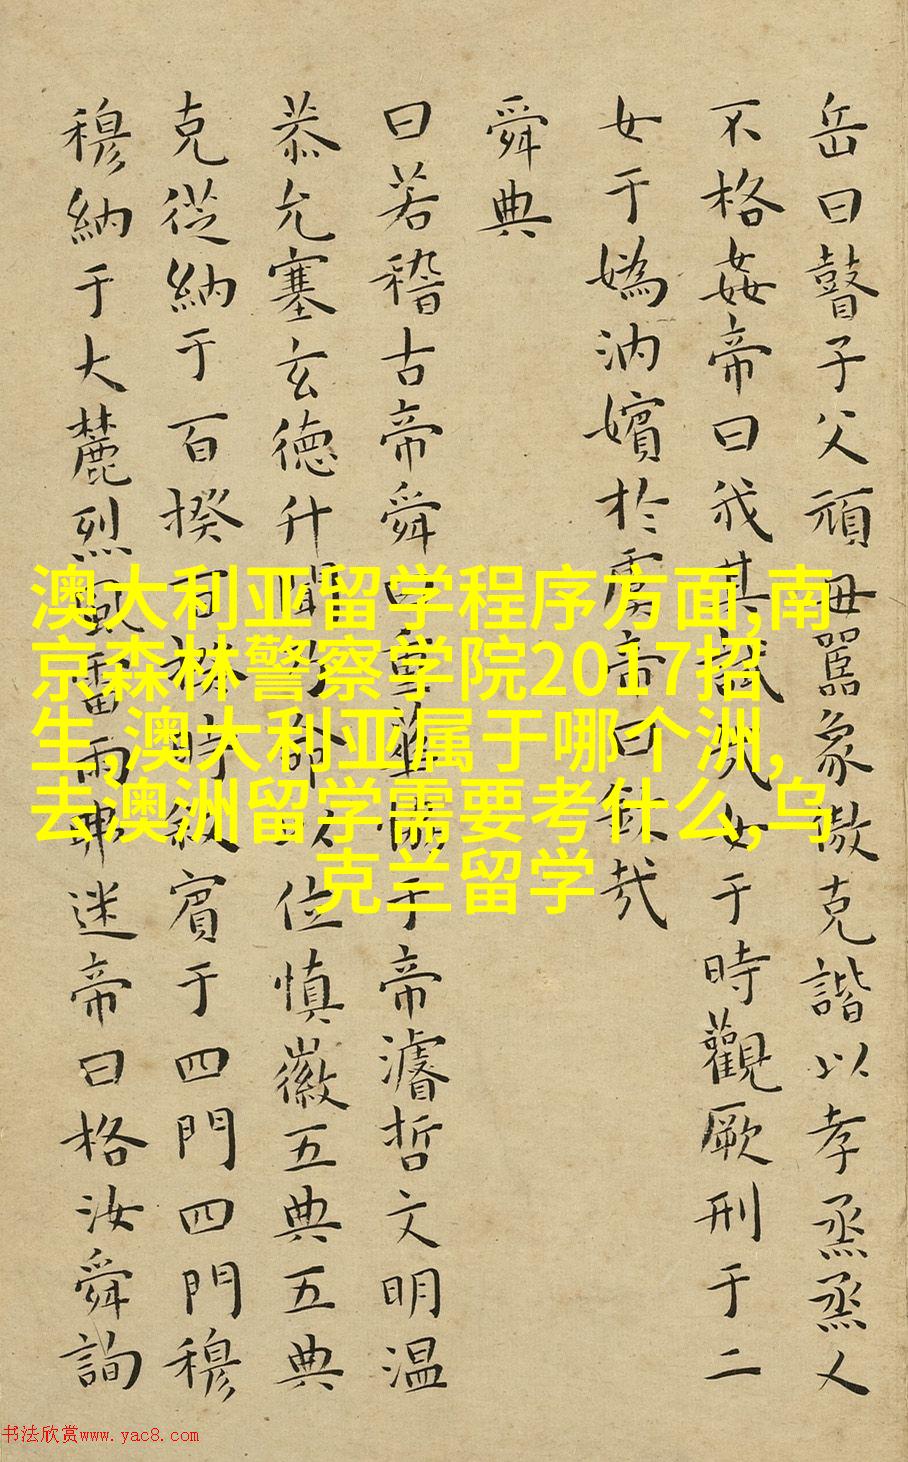 岳曰瞽子父頑毋嚚象傲克諧以孝烝烝乂
不格姦帝曰我其試哉女于時觀厥刑于二
女于媯汭嬪於虞帝曰欽哉
舜典
曰若稽古帝舜曰重華協于帝濬哲文明温
恭允塞玄德升聞乃命以位慎徽五典五典
克從納于百揆百揆時敘賓于四門四門穆
穆納于大麓烈風雷雨弗迷帝曰格汝舜詢
澳大利亚留学程序方面,南
京森林警察学院2017招
生,澳大利亚属于哪个洲,
去澳洲留学需要考什么,乌
克兰留学
书法欣赏www.yac8.com